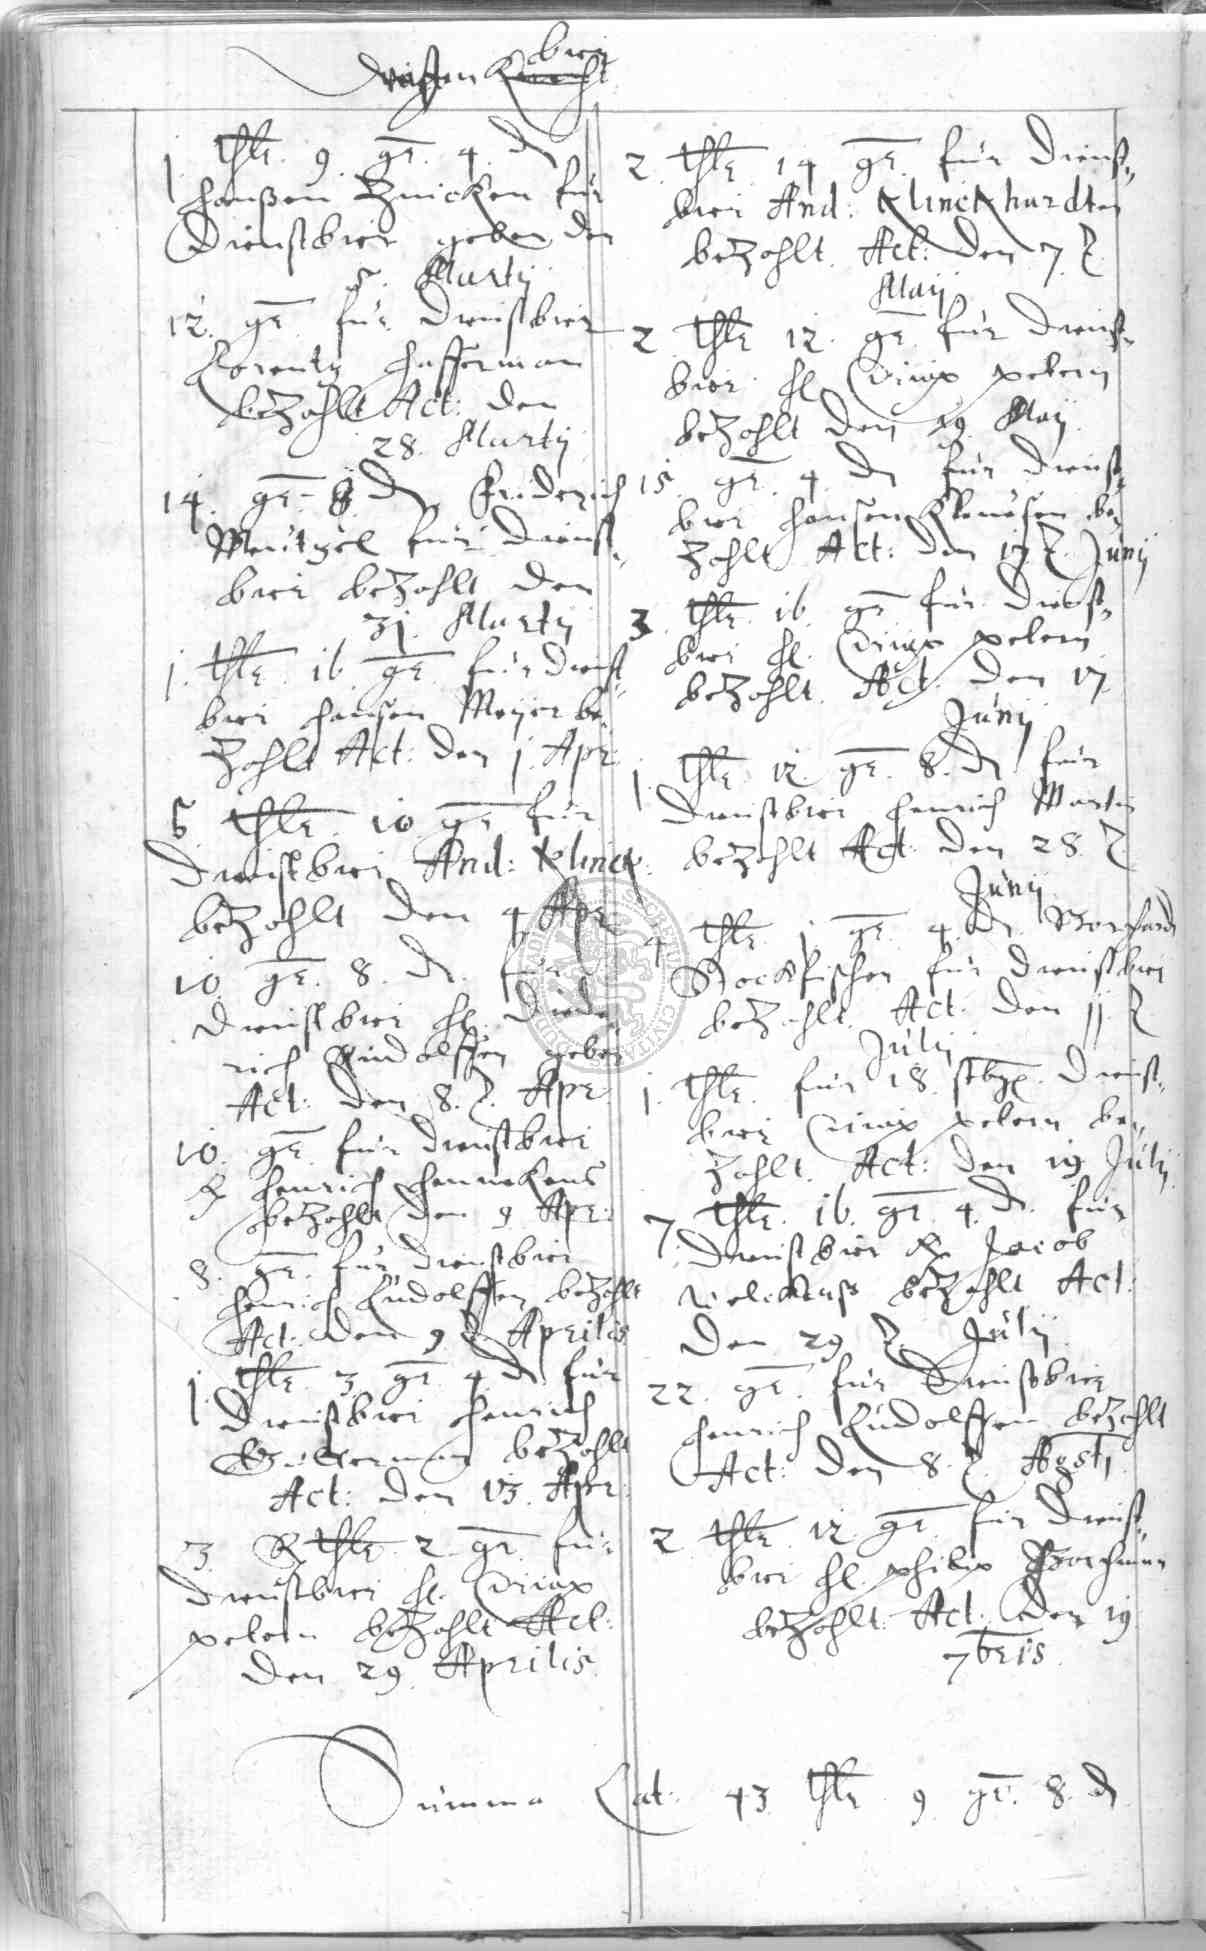 bier
1. thlr. 9. gr. 4. d
Hanßen Zwicken für
Dienstbier geben den
5. Martij
12. gr. für Dienstbier
Lorentz Hafferman
bezahlt Act: den
28. Martij
14. gr. 8 d Friderich
Wentzel für Dienst-
bier bezahlt den
31. Martij
1. thlr. 16. gr. für Dienst-
bier Hansen Meyer be-
zahlt Act: den 1. Apr:
5 thlr. 10 gr für
Dienstbier And: Klinck:
bezahlt den 4. Apr
10. gr. 8. d. für
Dienstbier H. Diede-
rich Rudolffen geben
Act: den 8. Apr:
10. gr. für Dienstbier
Henrich Hennekens
bezahlt den 9 Apr:
8. gr. für Dienstbier
Henrich Ludolffen bezahlt
Act: den 9 Aprilis
1. thlr. 3. gr. 4 d. für
Dienstbier Henrich
bezahlt
Act: den 13. Apr.
3. thlr. 2 gr. für
Dienstbier H. Ciriax
petern bezahlt Act:
den 29. Aprilis
2. thlr 14 gr. für Dienst-
bier And: Klinckhardten
bezahlt. Act: den 7
Maij
2 thlr 12. gr. für Dienst-
bier H. Ciriax petern
bezahlt den 19. Maij.
15. gr. 4. d für Dienst-
bier Hansen Klencken be-
zahlt Act: den 17 Junij
3. thlr. 16. gr für Dienst-
bier H. Ciriax petern
bezahlt. Act. den 17.
Junij
1. thlr. 12. gr. 8. d. für
Dienstbier Henrich Martin
bezahlt Act: den 28.
Junij
4. thlr. 1 gr. 4. d.
Stockfischen für Dienstbier
bezahlt. Act: den 11.
Julij
1. thlr. für 18. stbg. Dienst-
bier Ciriax petern be-
zahlt. Act: den 19 Julij
7. thlr. 16. gr. 4. d. für
Dienstbier Jacob
bezahlt Act:
den 29 Julij
22. gr. für Dienstbier
Henrich Ludolffen bezahlt
Act: den 8. Agsti
2 thlr. 12. gr. für Dienst-
bier H. philip
bezahlt: Act: den 19
7bris.
Summa Lat: 43 thlr 9 gr. 8. d